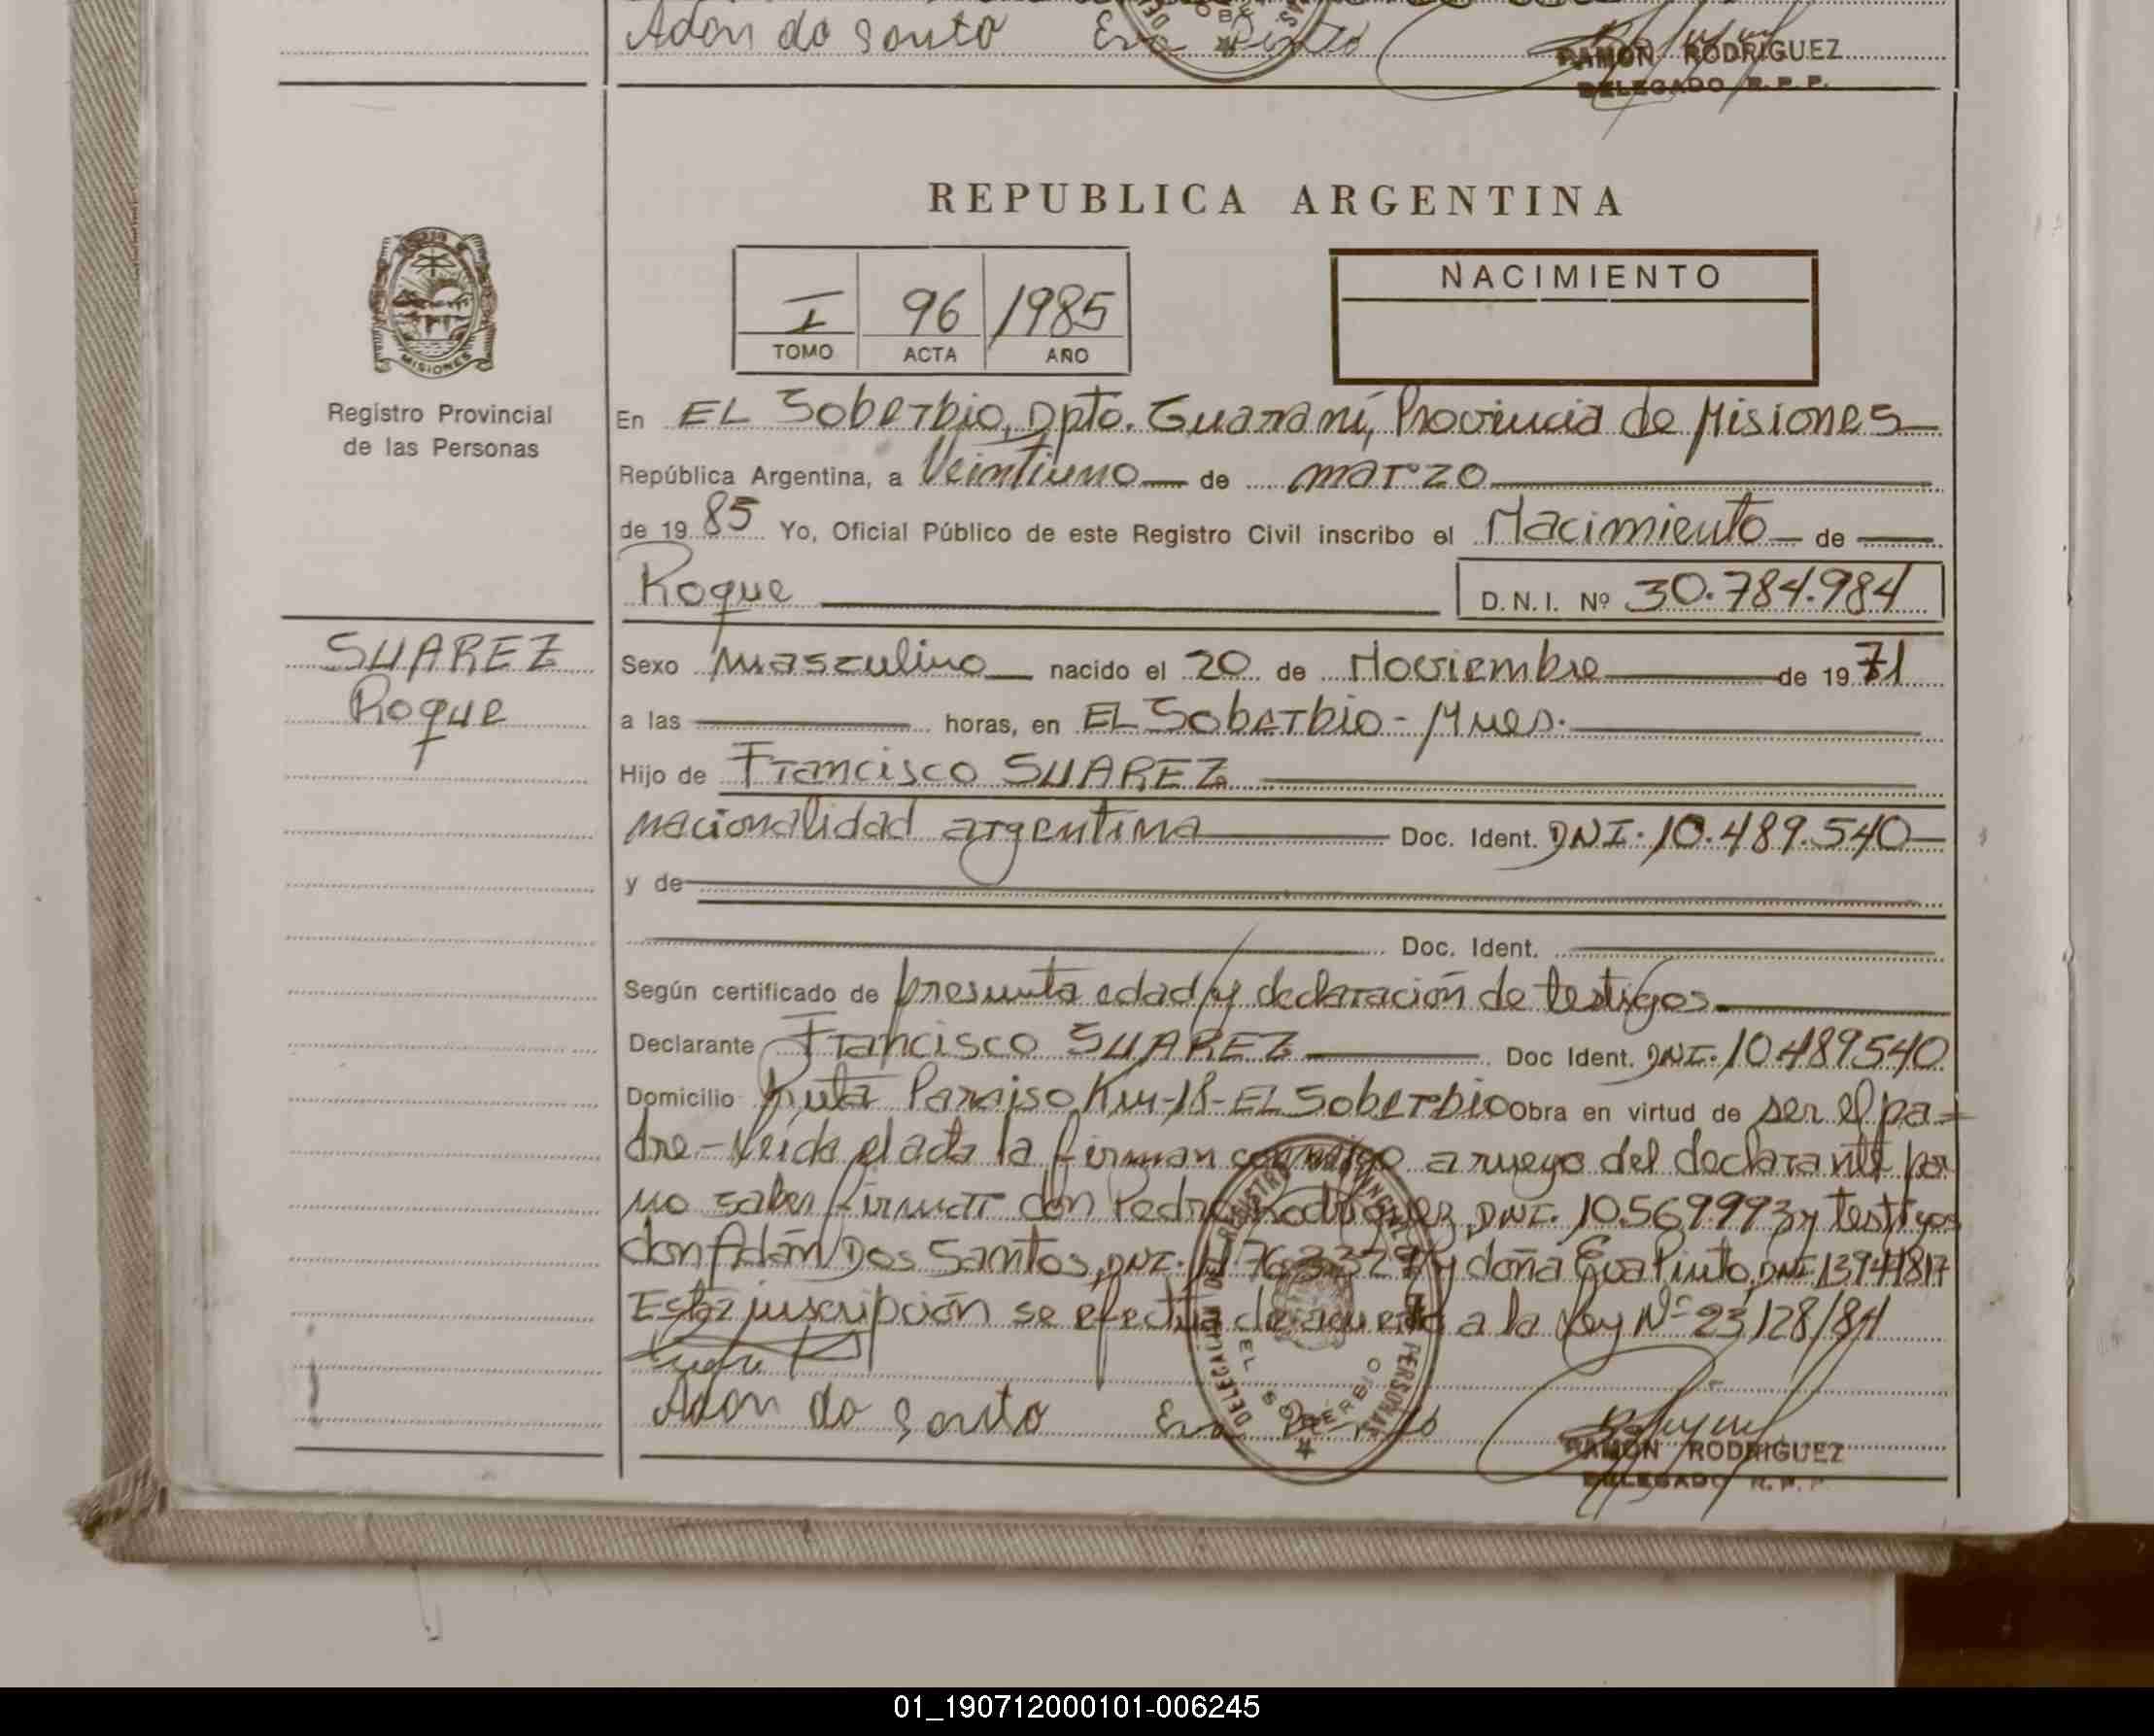 Adan do Santo Eva Pinto
RAMON RODRIGUEZ
DELEGADO R.P.P.
REPUBLICA ARGENTINA
MISIONES
Registro Provincial
de las Personas
I 96 1985
TOMO ACTA AÑO
NACIMIENTO
En EL Soberbio, Dpto. Guaraní, Provincia de Misiones
República Argentina, a Veintiuno de marzo
de 1985 Yo, Oficial Público de este Registro Civil inscribo el Nacimiento de
Roque D.N.I. Nº 30.784.984
SUAREZ
Roque
Sexo Masculino nacido el 20 de Noviembre de 1971
a las horas, en EL Soberbio - Mnes.
Hijo de Francisco SUAREZ
nacionalidad argentina Doc. Ident. DNI. 10.489.540
y de
Doc. Ident.
Según certificado de presunta edad y declaración de testigos.
Declarante Francisco SUAREZ Doc Ident. DNI. 10.489540
Domicilio Ruta Paraiso Km-18-EL Soberbio Obra en virtud de ser el pa-
dre-Leida el acta la firman conmigo a ruego del declarante por
no saber firmar don Pedro Rodriguez, DNI. 10.569993 y testigos
don Adán Dos Santos, DNI. y doña Eva Pinto, DNI 13941817
Esta inscripción se efectúa de acuerdo a la Ley Nº 23128/84
Adan do Santo Eva Pinto
REGISTRO PROVINCIAL DE LAS PERSONAS
DELEGACION
EL SOBERBIO
RAMON RODRIGUEZ
DELEGADO R.P.P
01_190712000101-006245